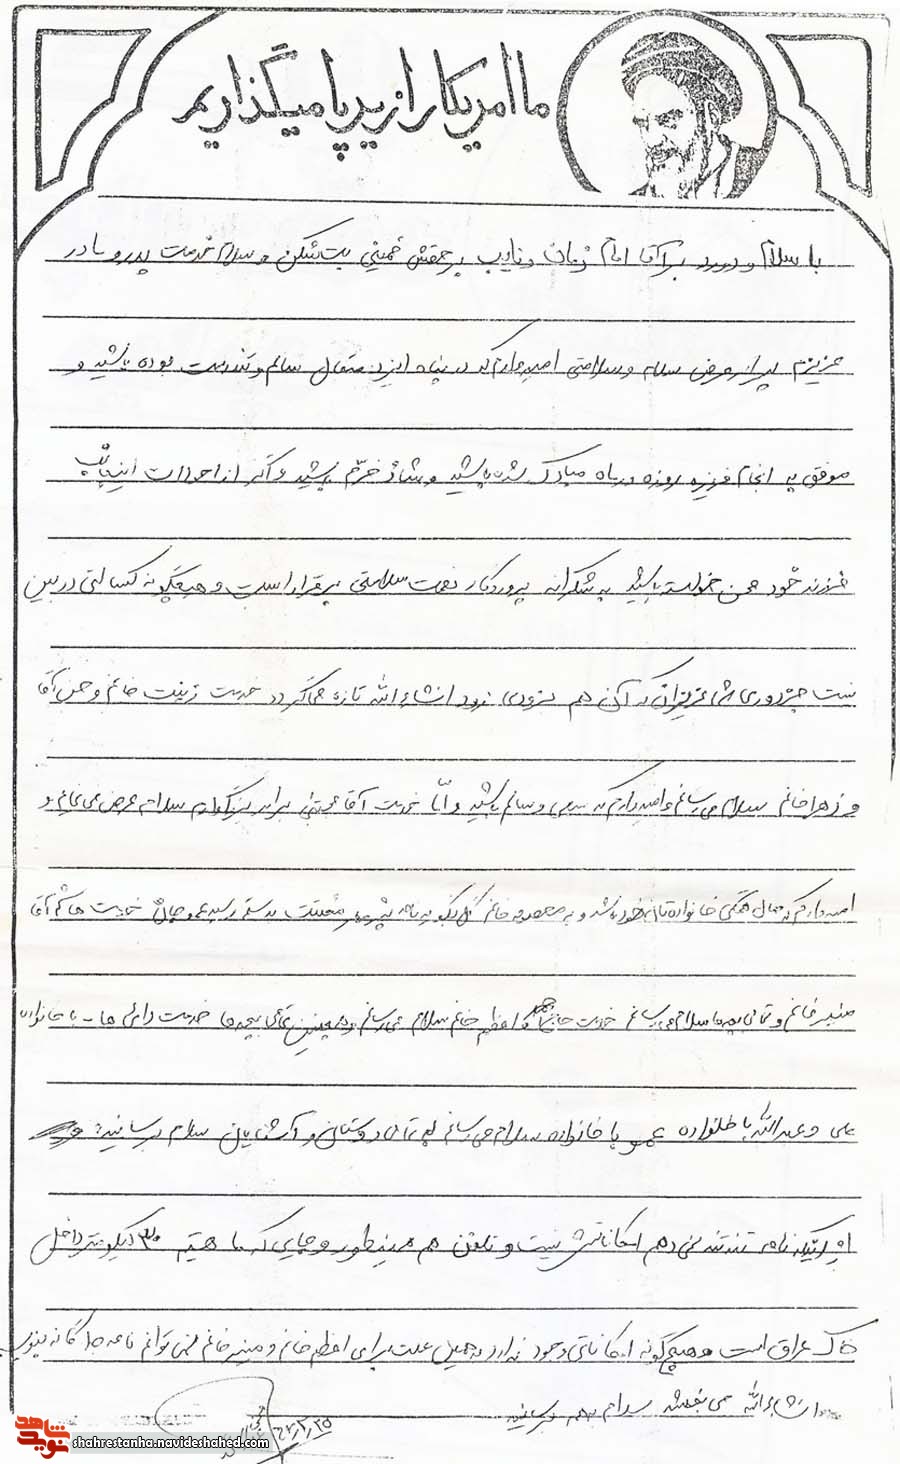 ما امریکا را زیر پا میگذاریم
با سلام و درود بر آقا امام زمان و نایب بر حقش خمینی بت شکن و سلام خدمت پدر و مادر
عزیزم پس از عرض سلام و سلامتی امیدوارم که در پناه ایزد متعال سالم و تندرست بوده باشید و
موفق به انجام فریضه روزه در ماه مبارک شده باشید و شاد و خرم باشید و اگر از احوالات اینجانب
فرزند خود حسن خواسته باشید به شکرانه پروردگار نعمت سلامتی برقرار است و هیچگونه کسالتی در بین
نیست جز دوری شما عزیزان که آن هم بزودی زود انشاء الله تازه میگردد خدمت زینت خانم و حسن آقا
و زهرا خانم سلام می رسانم و امیدوارم که سلامت و سالم باشید و اما خدمت آقا مجتبی برادر بزرگوارم سلام عرض می نمایم و
امیدوارم که حال همگی خانواده تان خوب باشد و به معصومه خانم بگوئید نامه پر محبتت بدستم رسید خدمت هاشم آقا
منیر خانم و تمامی بچه ها سلام می رسانم خدمت اعظم خانم سلام می رسانم و همچنین تمامی بچه ها خدمت دائی ها - با خانواده
علی و عبدالله با خانواده عمو با خانواده سلام می رسانم به تمامی دوستان و آشنایان سلام برسانید
از اینکه نامه تند تند نمی دهم امکاناتش نیست و تلفن هم همینطور و جایی که ما هستیم ۳۰ کیلومتر داخل
خاک عراق است و هیچ گونه امکاناتی وجود ندارد به همین علت برای اعظم خانم و منیر خانم نمی توانم نامه جداگانه بنویسم
انشاءالله می بخشند سلام بهمه برسانید
نوید شاهد
shahrestanha.navideshahed.com